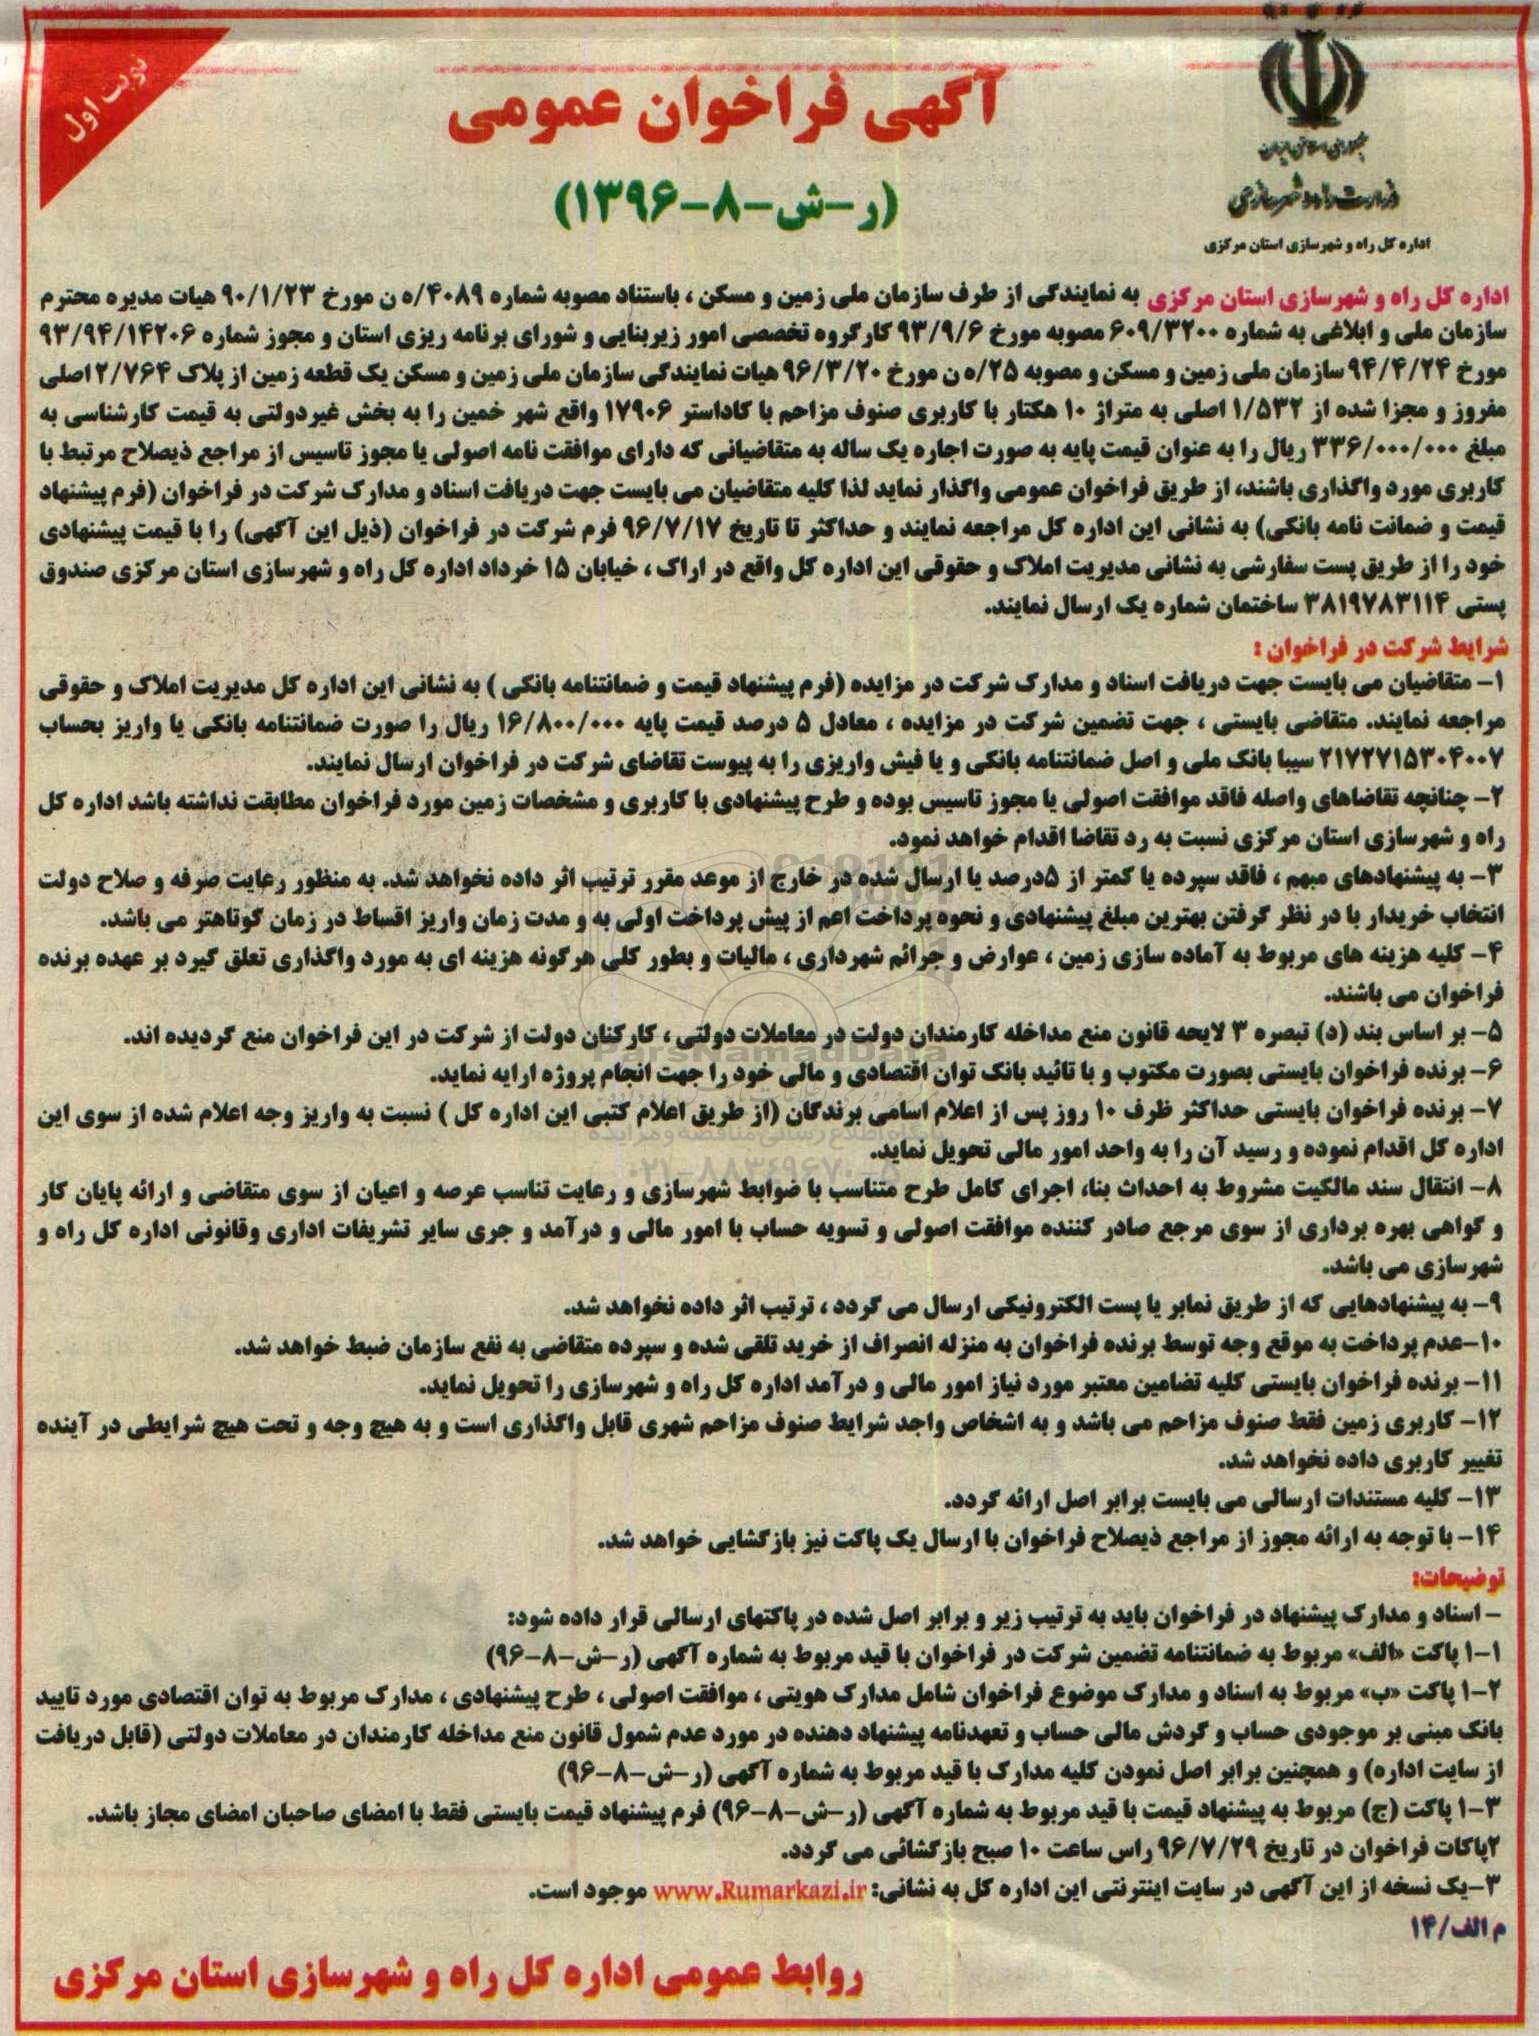 نوبت اول
جمهوری اسلامی ایران
وزارت راه و شهرسازی
اداره کل راه و شهرسازی استان مرکزی
آگهی فراخوان عمومی
(ر-ش-۸-۱۳۹۶)
اداره کل راه و شهرسازی استان مرکزی به نمایندگی از طرف سازمان ملی زمین و مسکن ، باستناد مصوبه شماره ۴۰۸۹/ه ن مورخ ۹۰/۱/۲۳ هیات مدیره محترم
سازمان ملی و ابلاغی به شماره ۶۰۹/۳۲۰۰ مصوبه مورخ ۹۳/۹/۶ کارگروه تخصصی امور زیربنایی و شورای برنامه ریزی استان و مجوز شماره ۹۳/۹۴/۱۴۲۰۶
مورخ ۹۴/۴/۲۴ سازمان ملی زمین و مسکن و مصوبه ۲۵/ه ن مورخ ۹۶/۳/۲۰ هیات نمایندگی سازمان ملی زمین و مسکن یک قطعه زمین از پلاک ۲/۷۶۴ اصلی
مفروز و مجزا شده از ۱/۵۳۲ اصلی به متراژ ۱۰ هکتار با کاربری صنوف مزاحم با کاداستر ۱۷۹۰۶ واقع شهر خمین را به بخش غیردولتی به قیمت کارشناسی به
مبلغ ۳۳۶/۰۰۰/۰۰۰ ریال را به عنوان قیمت پایه به صورت اجاره یک ساله به متقاضیانی که دارای موافقت نامه اصولی یا مجوز تاسیس از مراجع ذیصلاح مرتبط با
کاربری مورد واگذاری باشند، از طریق فراخوان عمومی واگذار نماید لذا کلیه متقاضیان می بایست جهت دریافت اسناد و مدارک شرکت در فراخوان (فرم پیشنهاد
قیمت و ضمانت نامه بانکی) به نشانی این اداره کل مراجعه نمایند و حداکثر تا تاریخ ۹۶/۷/۱۷ فرم شرکت در فراخوان (ذیل این آگهی) را با قیمت پیشنهادی
خود را از طریق پست سفارشی به نشانی مدیریت املاک و حقوقی این اداره کل واقع در اراک ، خیابان ۱۵ خرداد اداره کل راه و شهرسازی استان مرکزی صندوق
پستی ۳۸۱۹۷۸۳۱۱۴ ساختمان شماره یک ارسال نمایند.
شرایط شرکت در فراخوان :
۱- متقاضیان می بایست جهت دریافت اسناد و مدارک شرکت در مزایده (فرم پیشنهاد قیمت و ضمانتنامه بانکی ) به نشانی این اداره کل مدیریت املاک و حقوقی
مراجعه نمایند. متقاضی بایستی ، جهت تضمین شرکت در مزایده ، معادل ۵ درصد قیمت پایه ۱۶/۸۰۰/۰۰۰ ریال را صورت ضمانتنامه بانکی یا واریز بحساب
۲۱۷۲۷۱۵۳۰۴۰۰۷ سیبا بانک ملی و اصل ضمانتنامه بانکی و یا فیش واریزی را به پیوست تقاضای شرکت در فراخوان ارسال نمایند.
۲- چنانچه تقاضاهای واصله فاقد موافقت اصولی یا مجوز تاسیس بوده و طرح پیشنهادی با کاربری و مشخصات زمین مورد فراخوان مطابقت نداشته باشد اداره کل
راه و شهرسازی استان مرکزی نسبت به رد تقاضا اقدام خواهد نمود.
۳- به پیشنهادهای مبهم ، فاقد سپرده یا کمتر از ۵درصد یا ارسال شده در خارج از موعد مقرر ترتیب اثر داده نخواهد شد. به منظور رعایت صرفه و صلاح دولت
انتخاب خریدار با در نظر گرفتن بهترین مبلغ پیشنهادی و نحوه پرداخت اعم از پیش پرداخت اولی به و مدت زمان واریز اقساط در زمان کوتاهتر می باشد.
۴- کلیه هزینه های مربوط به آماده سازی زمین ، عوارض و جرائم شهرداری ، مالیات و بطور کلی هرگونه هزینه ای به مورد واگذاری تعلق گیرد بر عهده برنده
فراخوان می باشند.
۵- بر اساس بند (د) تبصره ۳ لایحه قانون منع مداخله کارمندان دولت در معاملات دولتی ، کارکنان دولت از شرکت در این فراخوان منع گردیده اند.
۶- برنده فراخوان بایستی بصورت مکتوب و با تائید بانک توان اقتصادی و مالی خود را جهت انجام پروژه ارایه نماید.
۷- برنده فراخوان بایستی حداکثر ظرف ۱۰ روز پس از اعلام اسامی برندگان (از طریق اعلام کتبی این اداره کل ) نسبت به واریز وجه اعلام شده از سوی این
اداره کل اقدام نموده و رسید آن را به واحد امور مالی تحویل نماید.
۸- انتقال سند مالکیت مشروط به احداث بنا، اجرای کامل طرح متناسب با ضوابط شهرسازی و رعایت تناسب عرصه و اعیان از سوی متقاضی و ارائه پایان کار
و گواهی بهره برداری از سوی مرجع صادر کننده موافقت اصولی و تسویه حساب با امور مالی و درآمد و جری سایر تشریفات اداری وقانونی اداره کل راه و
شهرسازی می باشد.
۹- به پیشنهادهایی که از طریق نمابر یا پست الکترونیکی ارسال می گردد ، ترتیب اثر داده نخواهد شد.
۱۰-عدم پرداخت به موقع وجه توسط برنده فراخوان به منزله انصراف از خرید تلقی شده و سپرده متقاضی به نفع سازمان ضبط خواهد شد.
۱۱- برنده فراخوان بایستی کلیه تضامین معتبر مورد نیاز امور مالی و درآمد اداره کل راه و شهرسازی را تحویل نماید.
۱۲- کاربری زمین فقط صنوف مزاحم می باشد و به اشخاص واجد شرایط صنوف مزاحم شهری قابل واگذاری است و به هیچ وجه و تحت هیچ شرایطی در آینده
تغییر کاربری داده نخواهد شد.
۱۳- کلیه مستندات ارسالی می بایست برابر اصل ارائه گردد.
۱۴- با توجه به ارائه مجوز از مراجع ذیصلاح فراخوان با ارسال یک پاکت نیز بازگشایی خواهد شد.
توضیحات:
- اسناد و مدارک پیشنهاد در فراخوان باید به ترتیب زیر و برابر اصل شده در پاکتهای ارسالی قرار داده شود:
۱-۱ پاکت «الف» مربوط به ضمانتنامه تضمین شرکت در فراخوان با قید مربوط به شماره آگهی (ر-ش-۸-۹۶)
۱-۲ پاکت «ب» مربوط به اسناد و مدارک موضوع فراخوان شامل مدارک هویتی ، موافقت اصولی ، طرح پیشنهادی ، مدارک مربوط به توان اقتصادی مورد تایید
بانک مبنی بر موجودی حساب و گردش مالی حساب و تعهدنامه پیشنهاد دهنده در مورد عدم شمول قانون منع مداخله کارمندان در معاملات دولتی (قابل دریافت
از سایت اداره) و همچنین برابر اصل نمودن کلیه مدارک با قید مربوط به شماره آگهی (ر-ش-۸-۹۶)
۱-۳ پاکت (ج) مربوط به پیشنهاد قیمت با قید مربوط به شماره آگهی (ر-ش-۸-۹۶) فرم پیشنهاد قیمت بایستی فقط با امضای صاحبان امضای مجاز باشد.
۲پاکات فراخوان در تاریخ ۹۶/۷/۲۹ راس ساعت ۱۰ صبح بازگشائی می گردد.
۳-یک نسخه از این آگهی در سایت اینترنتی این اداره کل به نشانی: www.Rumarkazi.ir موجود است.
م الف/۱۴
روابط عمومی اداره کل راه و شهرسازی استان مرکزی
ParsNamadData
۰۲۱-۸۸۳۴۹۶۷۰-۸